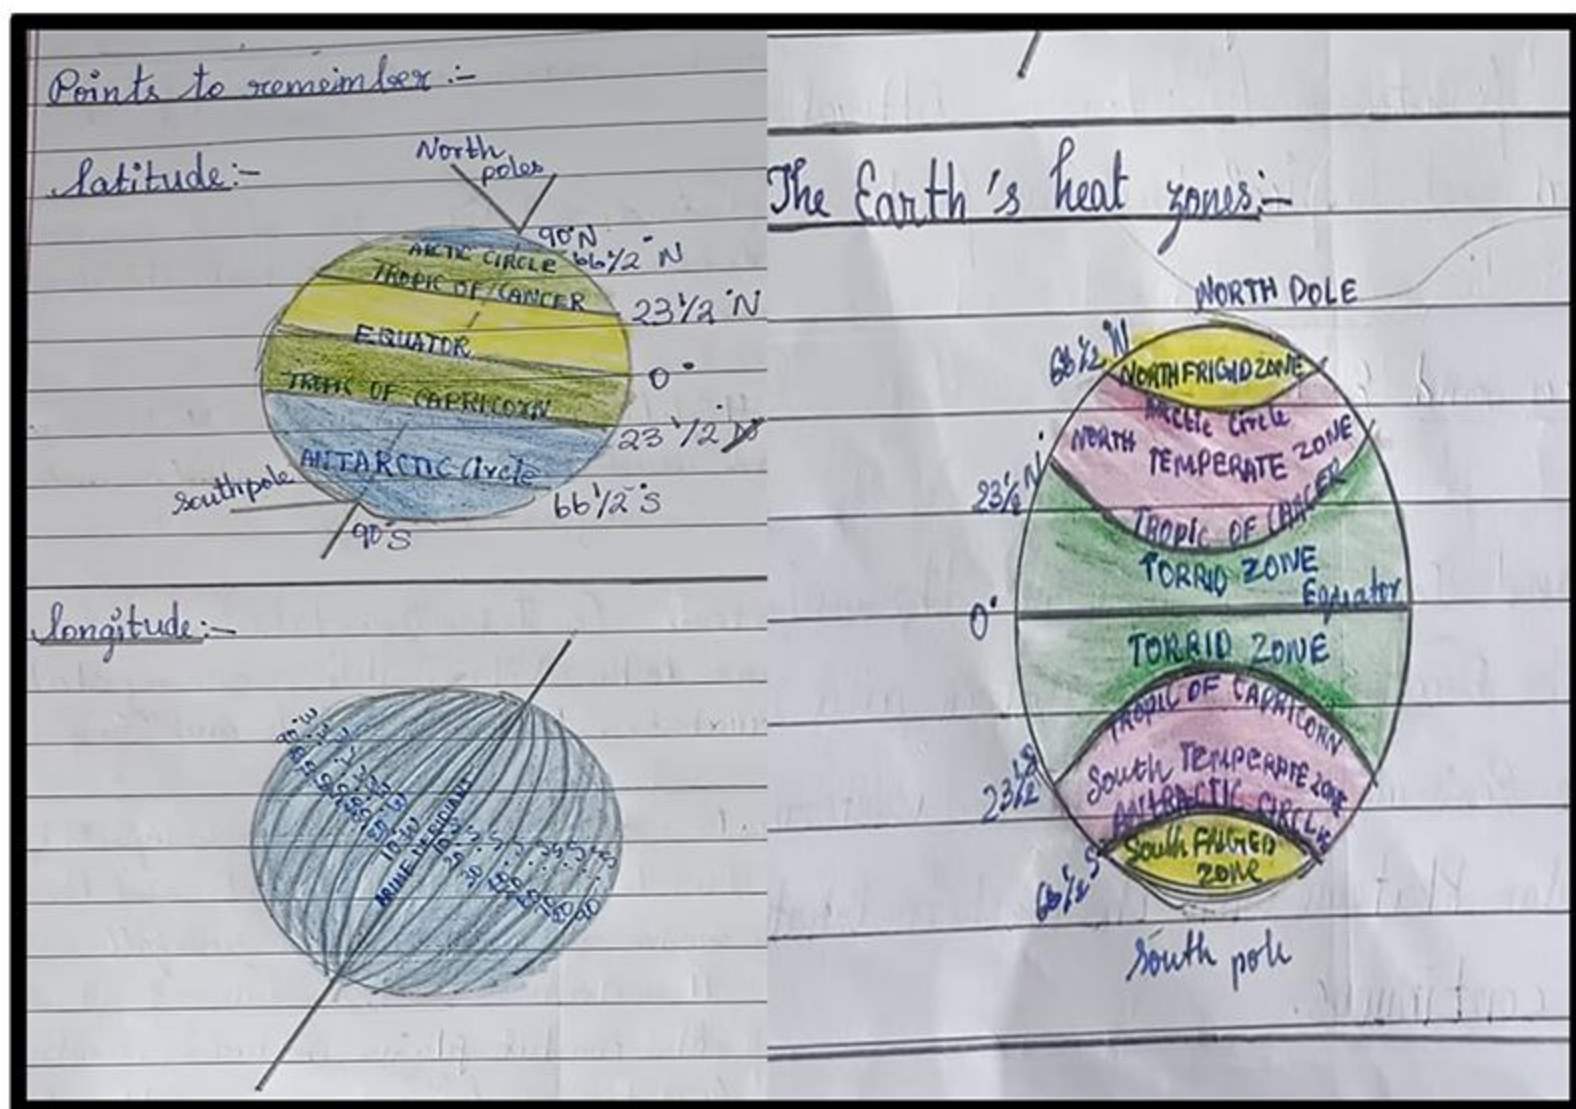 Points to remember :-
latitude:-
North
poles
90°N
ARCTIC CIRCLE 66 1/2° N
TROPIC OF CANCER
23 1/2° N
EQUATOR
0°
TROPIC OF CAPRICORN
23 1/2°
ANTARCTIC Circle
southpole
66 1/2° S
90°S
longitude:-
10°W
PRIME MERIDIANS
The Earth's heat zones:-
NORTH POLE
66 1/2° N
NORTH FRIGID ZONE
Arctic Circle
NORTH TEMPERATE ZONE
23 1/2° N
TROPIC OF CANCER
TORRID ZONE
Equator
0°
TORRID ZONE
TROPIC OF CAPRICORN
South TEMPERATE ZONE
23 1/2° S
ANTRACTIC CIRCLE
South FRIGED
ZONE
66 1/2° S
South pole